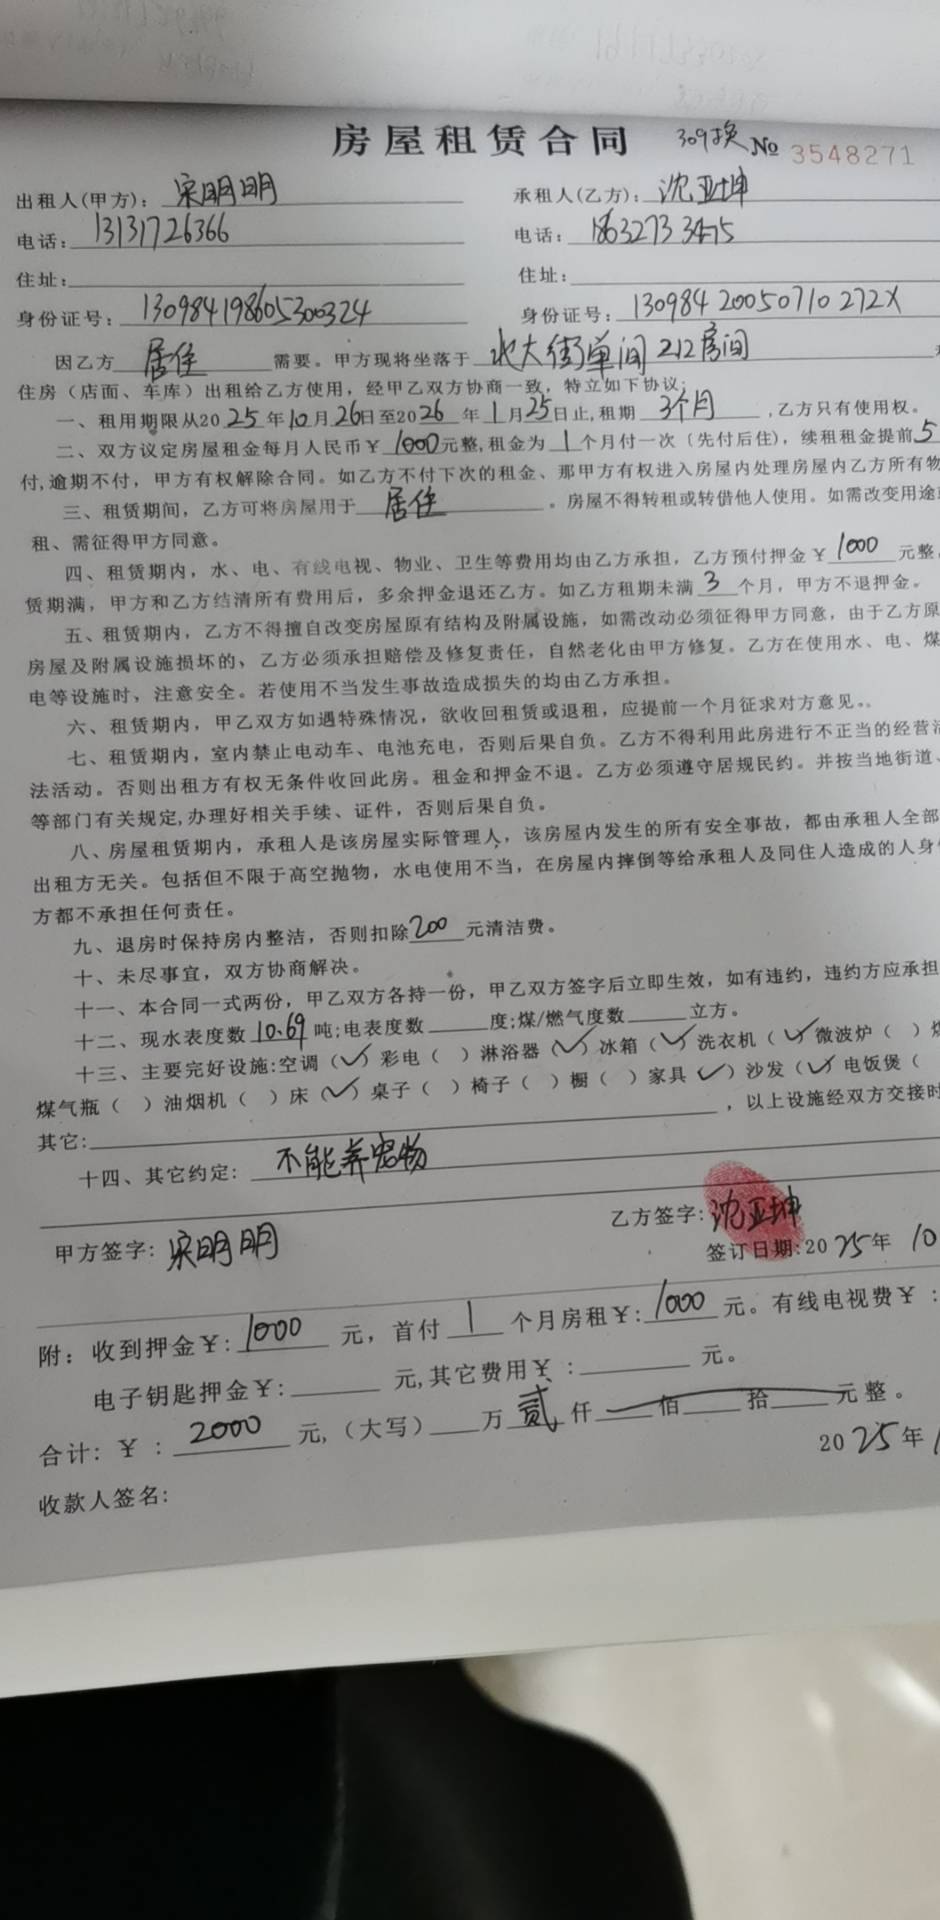 房屋租赁合同 309换 № 3548271
出租人(甲方): 宋明明 承租人(乙方): 沈亚坤
电话: 13131726366 电话: 18632733475
住址: 住址:
身份证号: 130984198605300324 身份证号: 13098420050710272X
因乙方 居住 需要。甲方现将坐落于 北大街单间212房间
住房（店面、车库）出租给乙方使用，经甲乙双方协商一致，特立如下协议:
一、租用期限从2025年10月26日至2026年1月25日止,租期 3个月 ,乙方只有使用权。
二、双方议定房屋租金每月人民币￥1000元整,租金为1个月付一次（先付后住），续租租金提前5
付,逾期不付，甲方有权解除合同。如乙方不付下次的租金、那甲方有权进入房屋内处理房屋内乙方所有物
三、租赁期间，乙方可将房屋用于 居住 。房屋不得转租或转借他人使用。如需改变用途
租、需征得甲方同意。
四、租赁期内，水、电、有线电视、物业、卫生等费用均由乙方承担，乙方预付押金￥1000元整
赁期满，甲方和乙方结清所有费用后，多余押金退还乙方。如乙方租期未满3个月，甲方不退押金。
五、租赁期内，乙方不得擅自改变房屋原有结构及附属设施，如需改动必须征得甲方同意，由于乙方原
房屋及附属设施损坏的、乙方必须承担赔偿及修复责任，自然老化由甲方修复。乙方在使用水、电、煤
电等设施时，注意安全。若使用不当发生事故造成损失的均由乙方承担。
六、租赁期内，甲乙双方如遇特殊情况，欲收回租赁或退租，应提前一个月征求对方意见。.
七、租赁期内，室内禁止电动车、电池充电，否则后果自负。乙方不得利用此房进行不正当的经营
法活动。否则出租方有权无条件收回此房。租金和押金不退。乙方必须遵守居规民约。并按当地街道、
等部门有关规定,办理好相关手续、证件，否则后果自负。
八、房屋租赁期内，承租人是该房屋实际管理人，该房屋内发生的所有安全事故，都由承租人全部
出租方无关。包括但不限于高空抛物，水电使用不当，在房屋内摔倒等给承租人及同住人造成的人身
方都不承担任何责任。
九、退房时保持房内整洁，否则扣除200元清洁费。
十、未尽事宜，双方协商解决。
十一、本合同一式两份，甲乙双方各持一份，甲乙双方签字后立即生效，如有违约，违约方应承担
十二、现水表度数10.69吨;电表度数 度;煤/燃气度数 立方。
十三、主要完好设施:空调（✓）彩电（ ）淋浴器（✓）冰箱（✓）洗衣机（✓）微波炉（ ）
煤气瓶（ ）油烟机（ ）床（✓）桌子（ ）椅子（ ）橱（ ）家具（✓）沙发（✓）电饭煲（
其它: ，以上设施经双方交接时
十四、其它约定: 不能养宠物
甲方签字: 宋明明 乙方签字: 沈亚坤
签订日期:2025年 10
附：收到押金￥:1000 元，首付 1 个月房租￥:1000 元。有线电视费￥:
电子钥匙押金￥: 元,其它费用￥: 元。
合计:￥: 2000 元,（大写） 万 贰 仟 佰 拾 元整。
2025年
收款人签名: